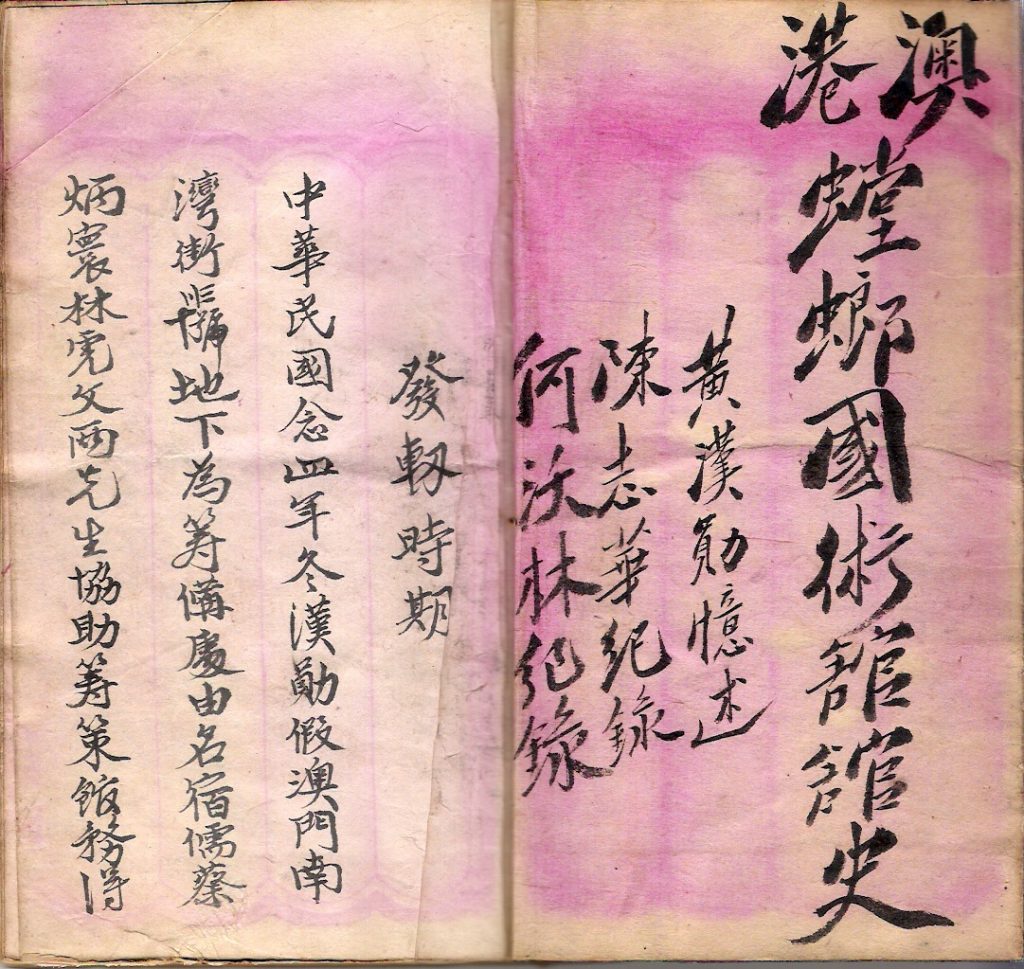 澳港螳螂國術舘舘史
黃漢勛憶述
陳志華紀錄
何沃林紀錄
發軔時期
中華民國念四年冬漢勛假澳門南
灣街號地下為筹備處由名宿儒蔡
炳寰林虎文兩先生協助筹策舘務得